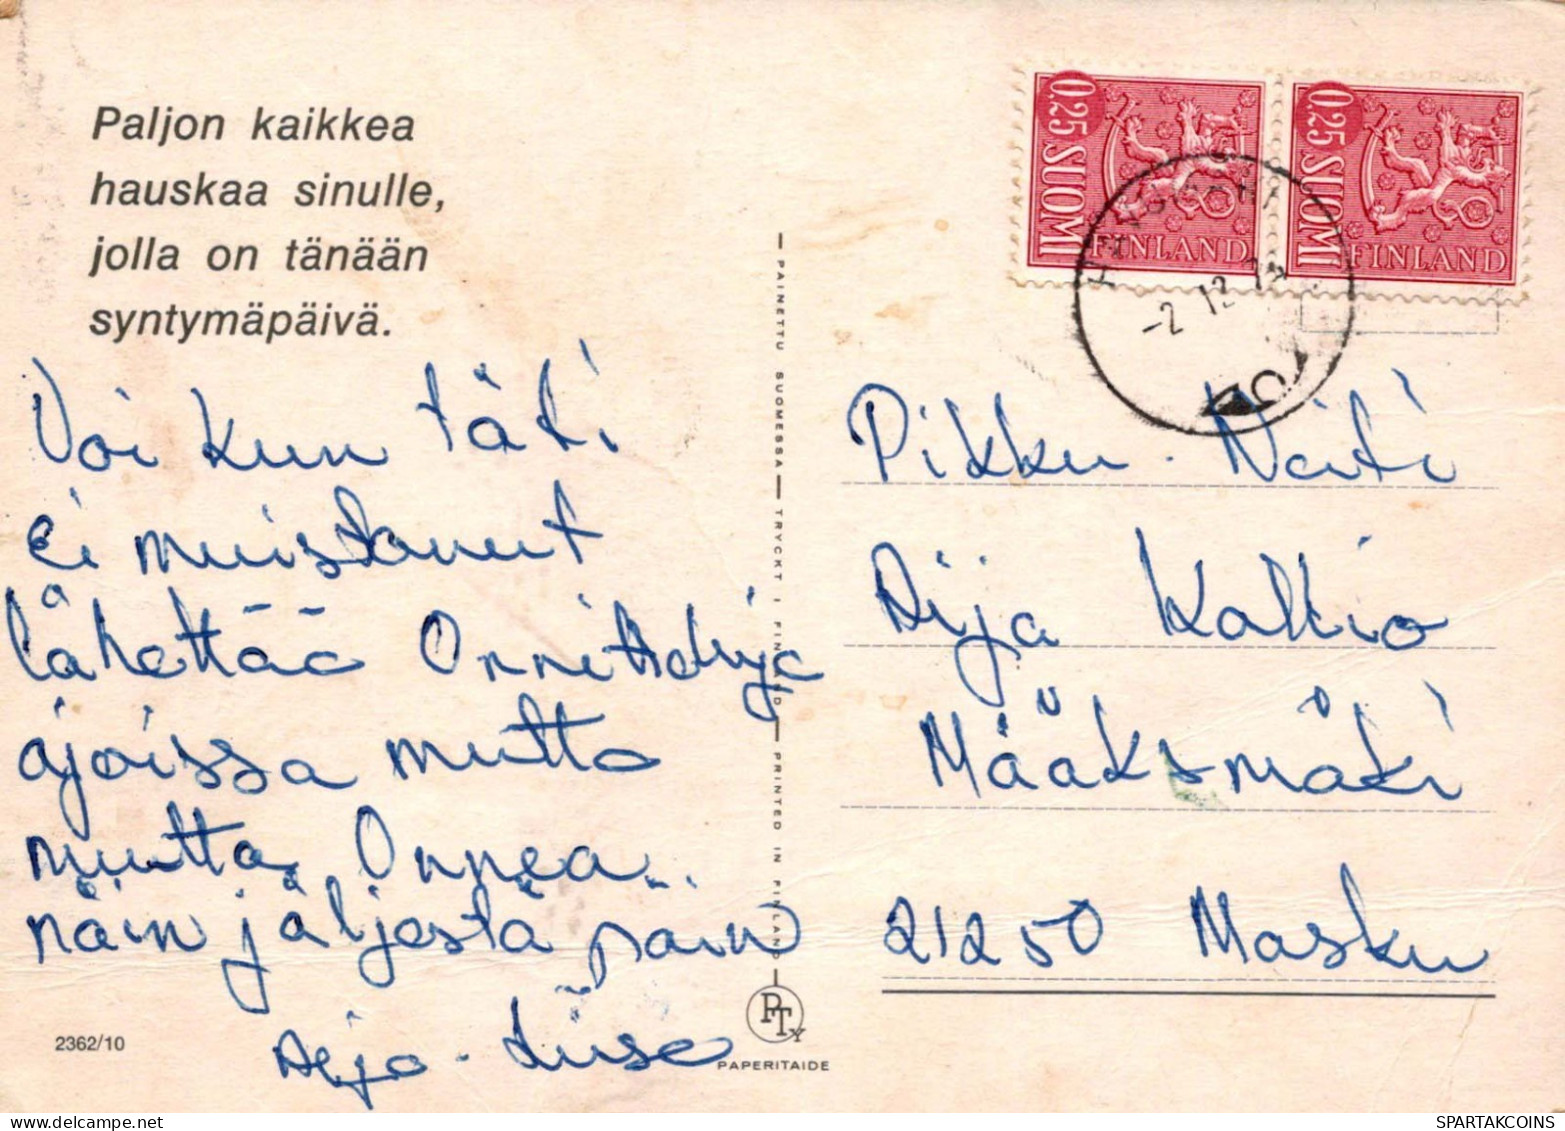 Paljon kaikkea
hauskaa sinulle,
jolla on tänään
syntymäpäivä.
Voi kun täti
ei muistanut
lähettää Onnitteluja
ajoissa mutta
mutta Onnea
näin jäljestä päin
2362/10
PAINETTU SUOMESSA — TRYCKT I FINLAND — PRINTED IN FINLAND
PTY
PAPERITAIDE
0.25 SUOMI
FINLAND
0.25 SUOMI
FINLAND
-2.12.
Pikku. Neiti
Aija Kallio
Määksmäki
21250 Masku
SPARTAKCOINS